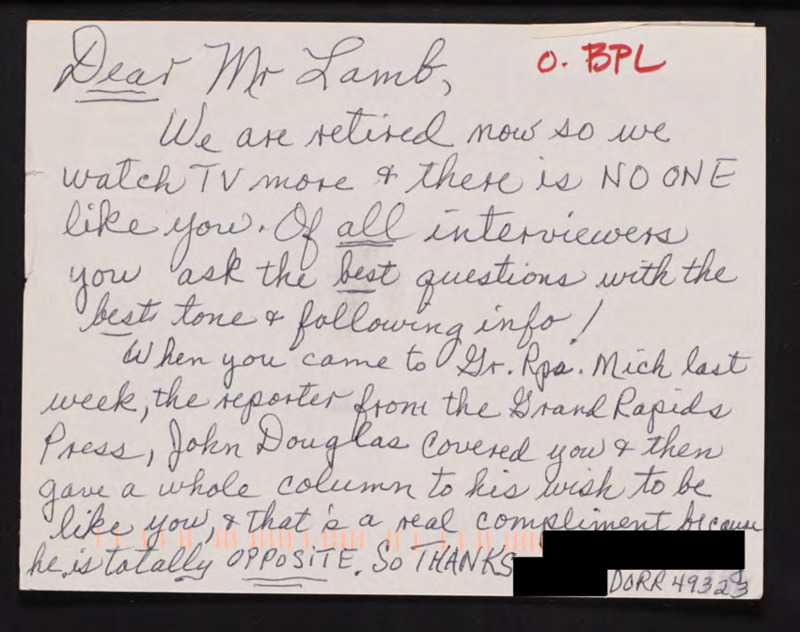 O. BPL
Dear Mr Lamb,
We are retired now so we
watch TV more & there is NO ONE
like you. Of all interviewers
you ask the best questions with the
best tone & following info!
When you came to Gr. Rps. Mich last
week, the reporter from the Grand Rapids
Press, John Douglas covered you & then
gave a whole column to his wish to be
like you, & that's a real compliment because
he is totally OPPOSITE. So THANKS
DORR 49323